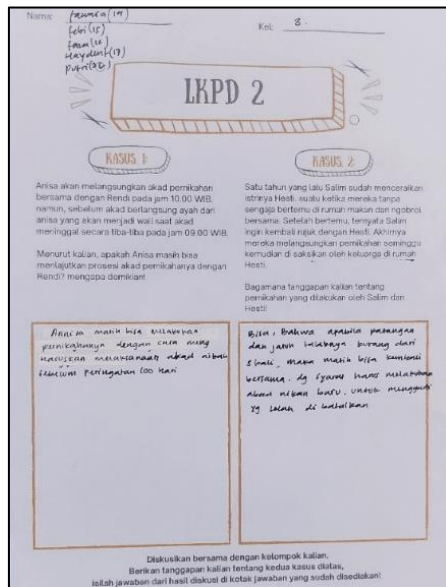 Nama: fawaza (14)
febi (15)
Kel: 8.
LKPD 2
KASUS 1:
Anisa akan melangsungkan akad pernikahan
bersama dengan Rendi pada jam 10.00 WIB.
namun, sebelum akad berlangsung ayah dari
anisa yang akan menjadi wali saat akad
meninggal secara tiba-tiba pada jam 09.00 WIB.
Menurut kalian, apakah Anisa masih bisa
melanjutkan prosesi akad pernikahanya dengan
Rendi? mengapa demikian!
KASUS 2:
Satu tahun yang lalu Salim sudah menceraikan
istrinya Hesti, suatu ketika mereka tanpa
sengaja bertemu di rumah makan dan ngobrol
bersama. Setelah bertemu, ternyata Salim
ingin kembali rujuk dengan Hesti. Akhirnya
mereka melangsungkan pernikahan seminggu
kemudian di saksikan oleh keluarga di rumah
Hesti.
Bagamana tanggapan kalian tentang
pernikahan yang dilakukan oleh Salim dan
Hesti!
Annisa masih bisa melakukan
pernikahannya dengan cara meng
haruskan melaksanakan akad nikah
sebelum peringatan 100 hari
Bisa, Bahwa apabila pasangan
dan jatuh talaknya kurang dari
3 kali, maka masih bisa kembali
bersama. dg syarat harus melakukan
akad nikah baru. untuk mengganti
yg telah di batalkan
Diskusikan bersama dengan kelompok kalian.
Berikan tanggapan kalian tentang kedua kasus diatas,
isilah jawaban dari hasil diskusi di kotak jawaban yang sudah disediakan!